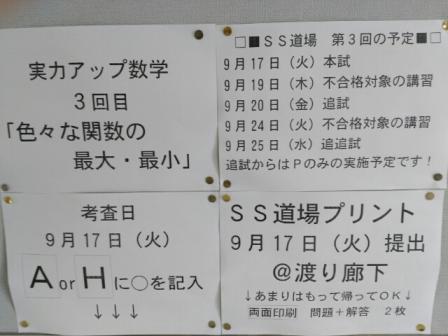 実力アップ数学
３回目
「色々な関数の
最大・最小」
□■ＳＳ道場　第３回の予定■□
９月１７日（火）本試
９月１９日（木）不合格対象の講習
９月２０日（金）追試
９月２４日（火）不合格対象の講習
９月２５日（水）追追試
追試からはＰのみの実施予定です！
考査日
９月１７日（火）
A or Hに○を記入
↓↓↓
ＳＳ道場プリント
９月１７日（火）提出
＠渡り廊下
↓あまりはもって帰ってＯＫ↓
両面印刷　問題＋解答　２枚